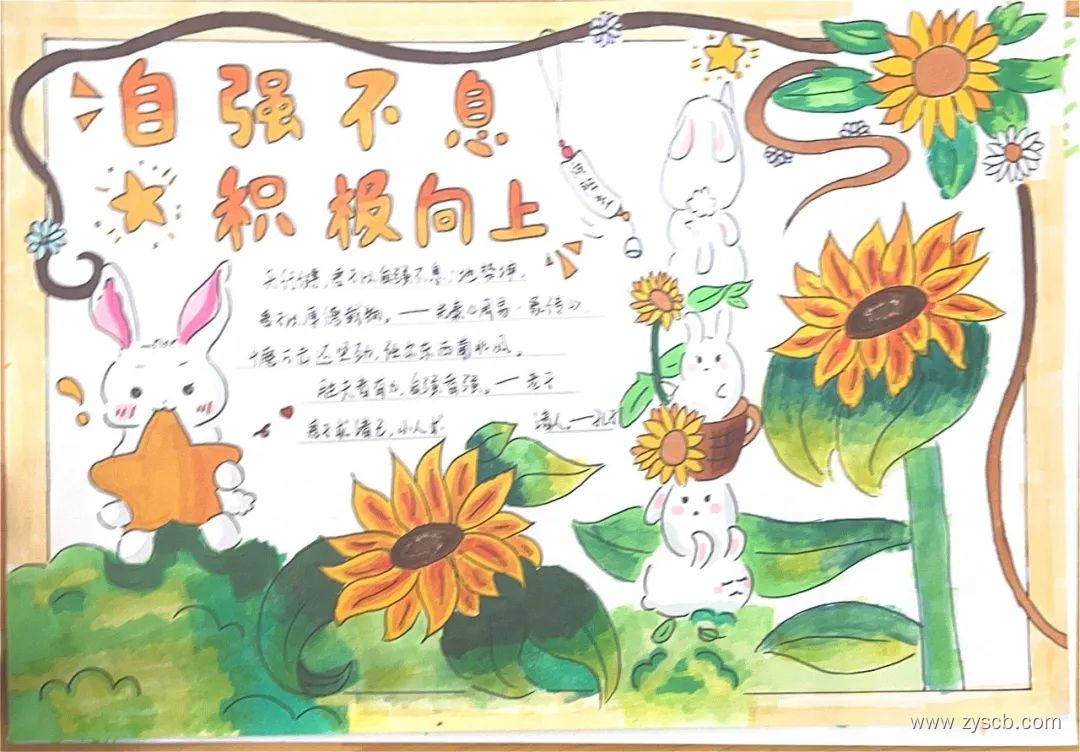 自强不息
积极向上
天行健,君子以自强不息;地势坤,
君子以厚德载物。——《周易·象传》
千磨万击还坚劲,任尔东西南北风。
胜人者有力,自强者强。——老子
君子求诸己,小人求诸人。——孔子
www.zyscb.com